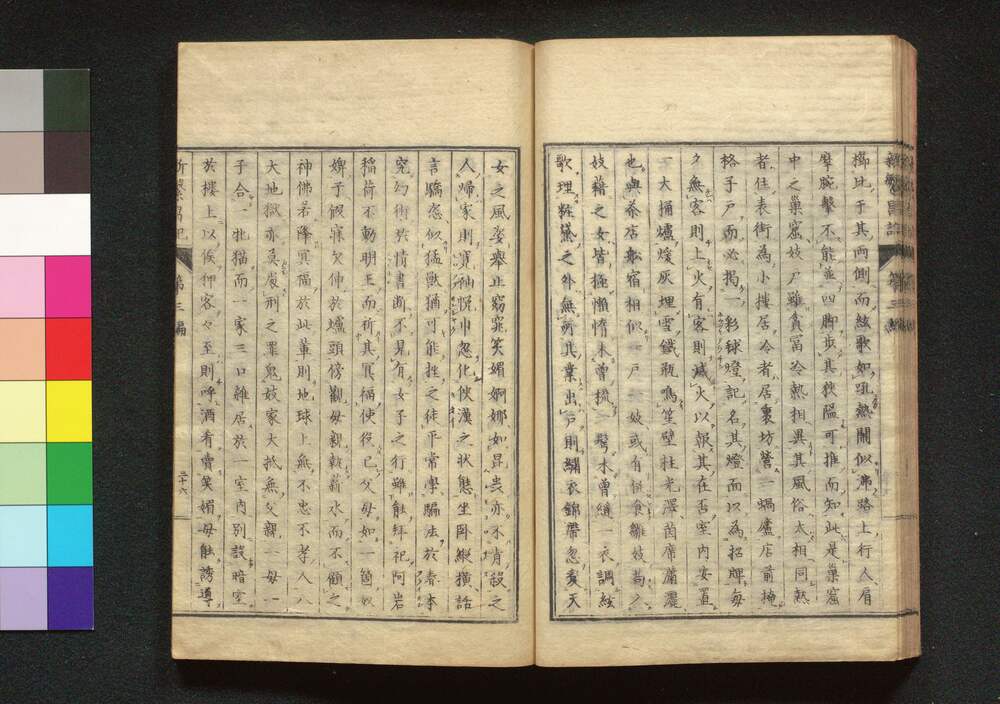 櫛比于其兩側而絃歌如沸熱鬧似沸路上行人肩
摩腕擊不能並四脚步其狹隘可推而知此是巢窟
中之巢窟妓戸雖貪冨冷熱相異其風俗太相同熱
者住表街為小摟居冷者居裏坊營一蝸廬店前掩
格子戸而必掲一彩毬燈記名其燈而以為招牌毎
夕無客則上火有客則減火以報其在否室内安置
一大桶爐煖灰埋雪鐵瓶鳴笙壁柱光澤茵席麗
也與茶店船宿相似一戸二妓或有
妓藉之女皆極懶惰未曾梳一髩未曾縫一衣調絃
歌理粧黛之外無所其業出戸則繡衣錦帶忽奪天
女之風姿舉止窈窕笑媚婀娜如昆虫亦不肯殺之
人歸家則寶袖帨巾忽化伏漢之狀態坐臥縱橫話
言驕恣似猛獸猶可能挫之徒平常學騙法於春本
究幻術於情書斷不見有女子之行雖能拜祀阿岩
稲荷不動明王而祈其冥福使役已父母如一箇奴
婢子假寐欠伸於爐頭傍觀母親執薪水而不顧之
神佛若降冥福於此輩則地球上無不忠不孝人八
大地獄亦莫處刑之罪鬼妓家大抵無父親一母一
子合一牝猫而一家三口雜居於一室内別設暗室
於樓上以候押客々至則呼酒肴賣笑媚母能誘導
新繁昌記　第三編　三十六